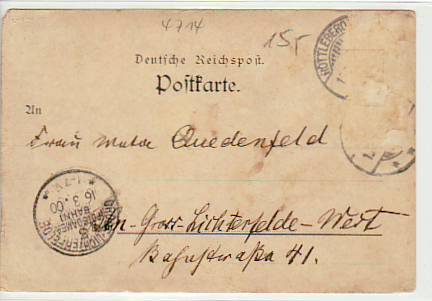 4714
15,-
Deutsche Reichspost.
Postkarte.
An
Frau Meta Quedenfeld
in Gross-Lichterfelde-West
Bahnstraße 41.
ROTTLEBERO
16 3.00